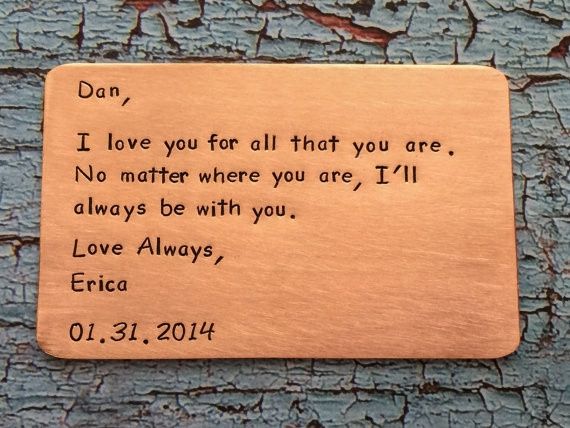 Dan,
I love you for all that you are.
No matter where you are, I'll
always be with you.
Love Always,
Erica
01.31.2014